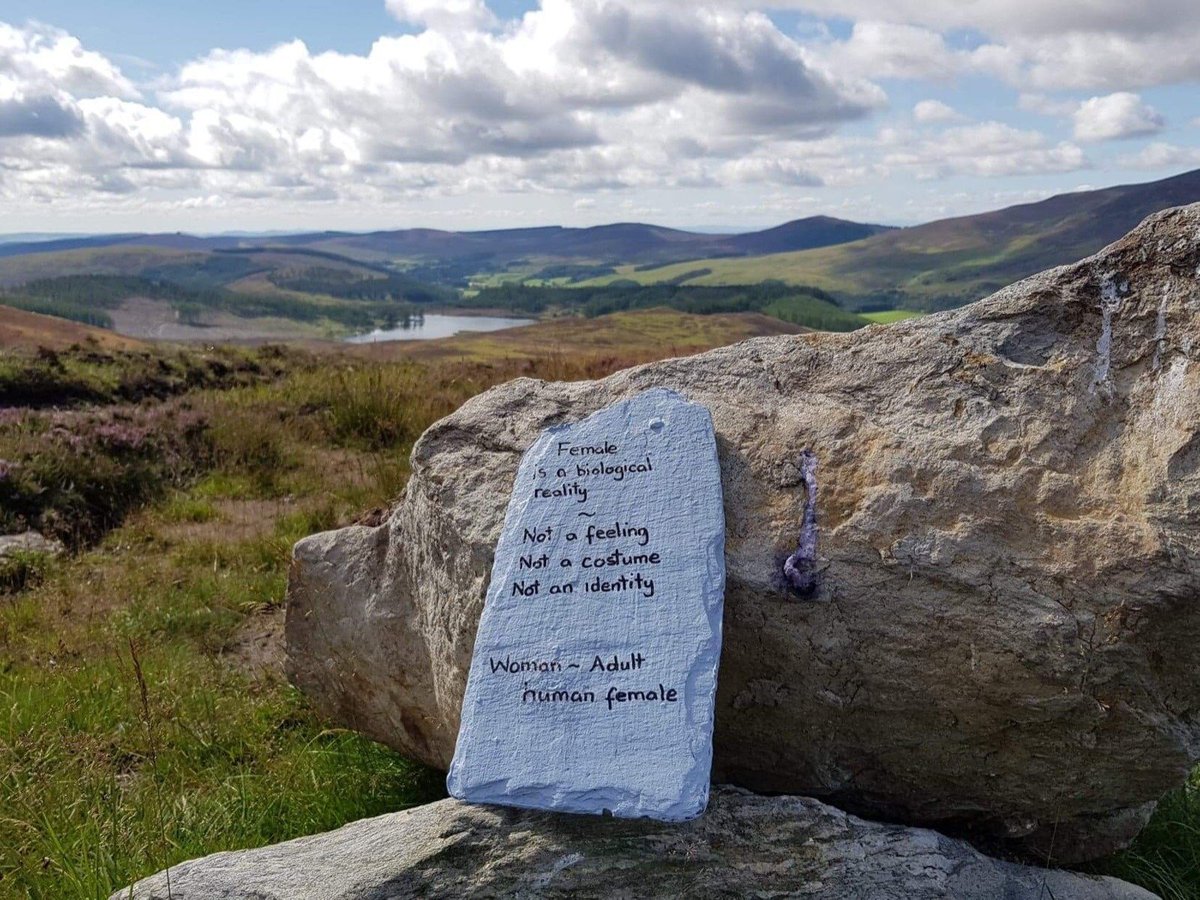 Female
is a biological
reality
~
Not a feeling
Not a costume
Not an identity
Woman ~ Adult
human female